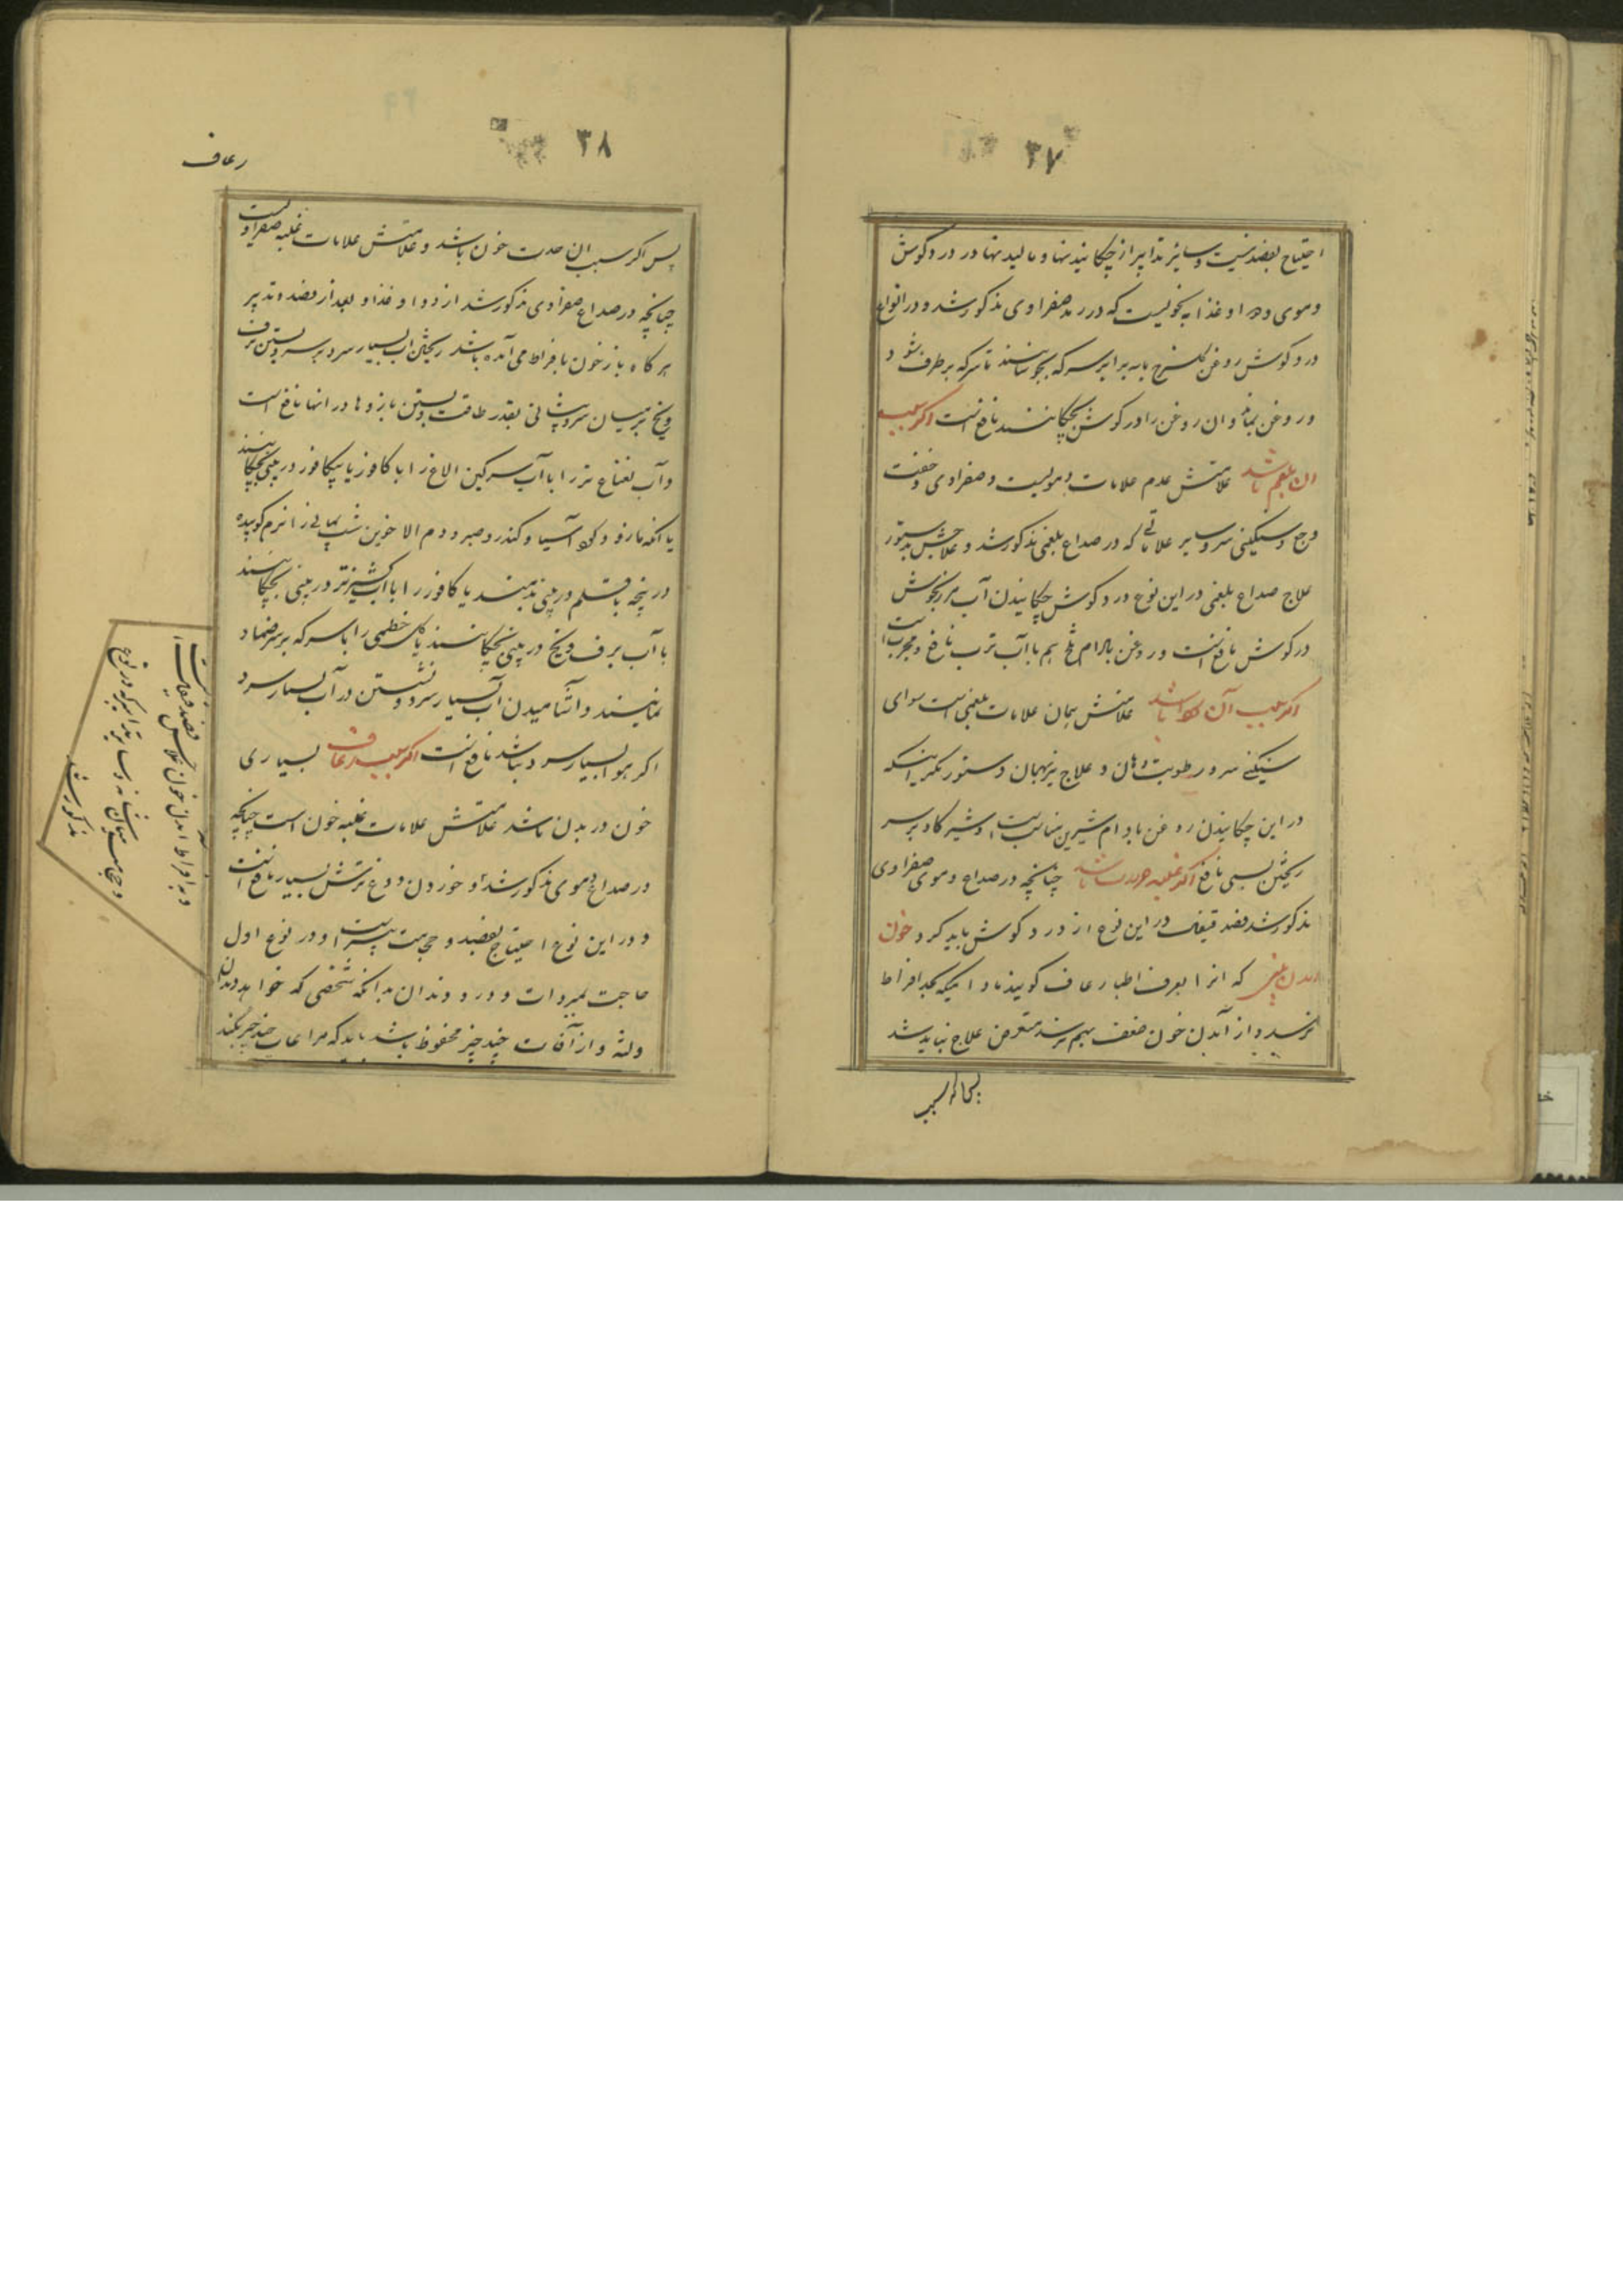 ۳۷
احتیاج بفصد نیست و سایر تدابیر از چکانیدنیها و مالیدنیها در درد گوش
دموی و دوا و غذا بنحویست که در رمد صفراوی مذکور شد و در انواع
درد گوش روغن گل سرخ با برابر سرکه بجوشانند تا سرکه برطرف شود
و روغن بماند و ان روغن را در گوش بچکانند نافع است اگر سبب
ان بلغم باشد علامتش عدم علامات دمویست و صفراوی و خفت
وجع و سنگینی سر و سایر علاماتی که در صداع بلغمی مذکور شد و علاجش بدستور
علاج صداع بلغمی در این نوع درد گوش چکانیدن آب مرزنجوش
در گوش نافع است و روغن بادام تلخ هم با آب ترب نافع و مجرب است
اگر سبب آن سودا باشد علامتش همان علامات بلغمی است سوای
سنگینی سر و رطوبت دهان و علاج نیز بهمان دستور مگر اینکه
در این چکانیدن روغن بادام شیرین مناسب است و شیر گاو بر سر
ریختن بسی نافع اگر غلبه حرارت باشد چنانچه در صداع دموی صفراوی
مذکور شد فصد قیفال در این نوع از درد گوش باید کرد خون
امدن بینی که انرا بعرف اطبا رعاف گویند مادامیکه بحد افراط
نرسد و از آمدن خون ضعف بهم نرسد متعرض علاج نباید شد
پس اگر سبب
۳۸
رعاف
پس اگر سبب ان حدت خون باشد و علامتش علامات غلبه صفراوست
چنانچه در صداع صفراوی مذکور شد از دوا و غذا و بعد از فصد و تدبیر
هرگاه باز خون بافراط می آمده باشد ریختن اب بسیار سرد بر سر و بستن برف
و یخ بر میان سر و پیشانی بقدر طاقت و بستن بازوها و رانها نافع است
و آب نعناع تر را با آب سرگین الاغ را با کافور یا بیکافور در بینی بچکانند
یا انکه مازو و گرد آسیا و کندر و صبر و دم الاخوین شب یمانی را نرم کوبیده
در پنچه با قلم در بینی بدمند یا کافور را با اب گشنیز تر در بینی بچکانند
با آب برف و یخ در بینی بچکانند یا گل خطمی را با سرکه بر سر ضماد
نمایند و آشامیدن آب بسیار سرد و نشستن در آب بسیار سرد
اگر هوا بسیار سرد نباشد نافع است اگر سبب رعاف بسیاری
خون در بدن باشد علامتش علامات غلبه خون است چنانچه
در صداع دموی مذکور شد و خوردن دوغ ترش بسیار نافع است
و در این نوع احتیاج بفصد و حجامت بیشتر است و در نوع اول
حاجت بمبردات و درد دندان بدانکه شخصی که خواهد دندان
و لثه و از آفات چند چیز محفوظ باشد باید که مراعات چند چیز بکند
و به افراط امدن خون علاجش فصد قیفال است
و حجامت میان شانه و سایر تدابیر که در نوع
مذکور شد